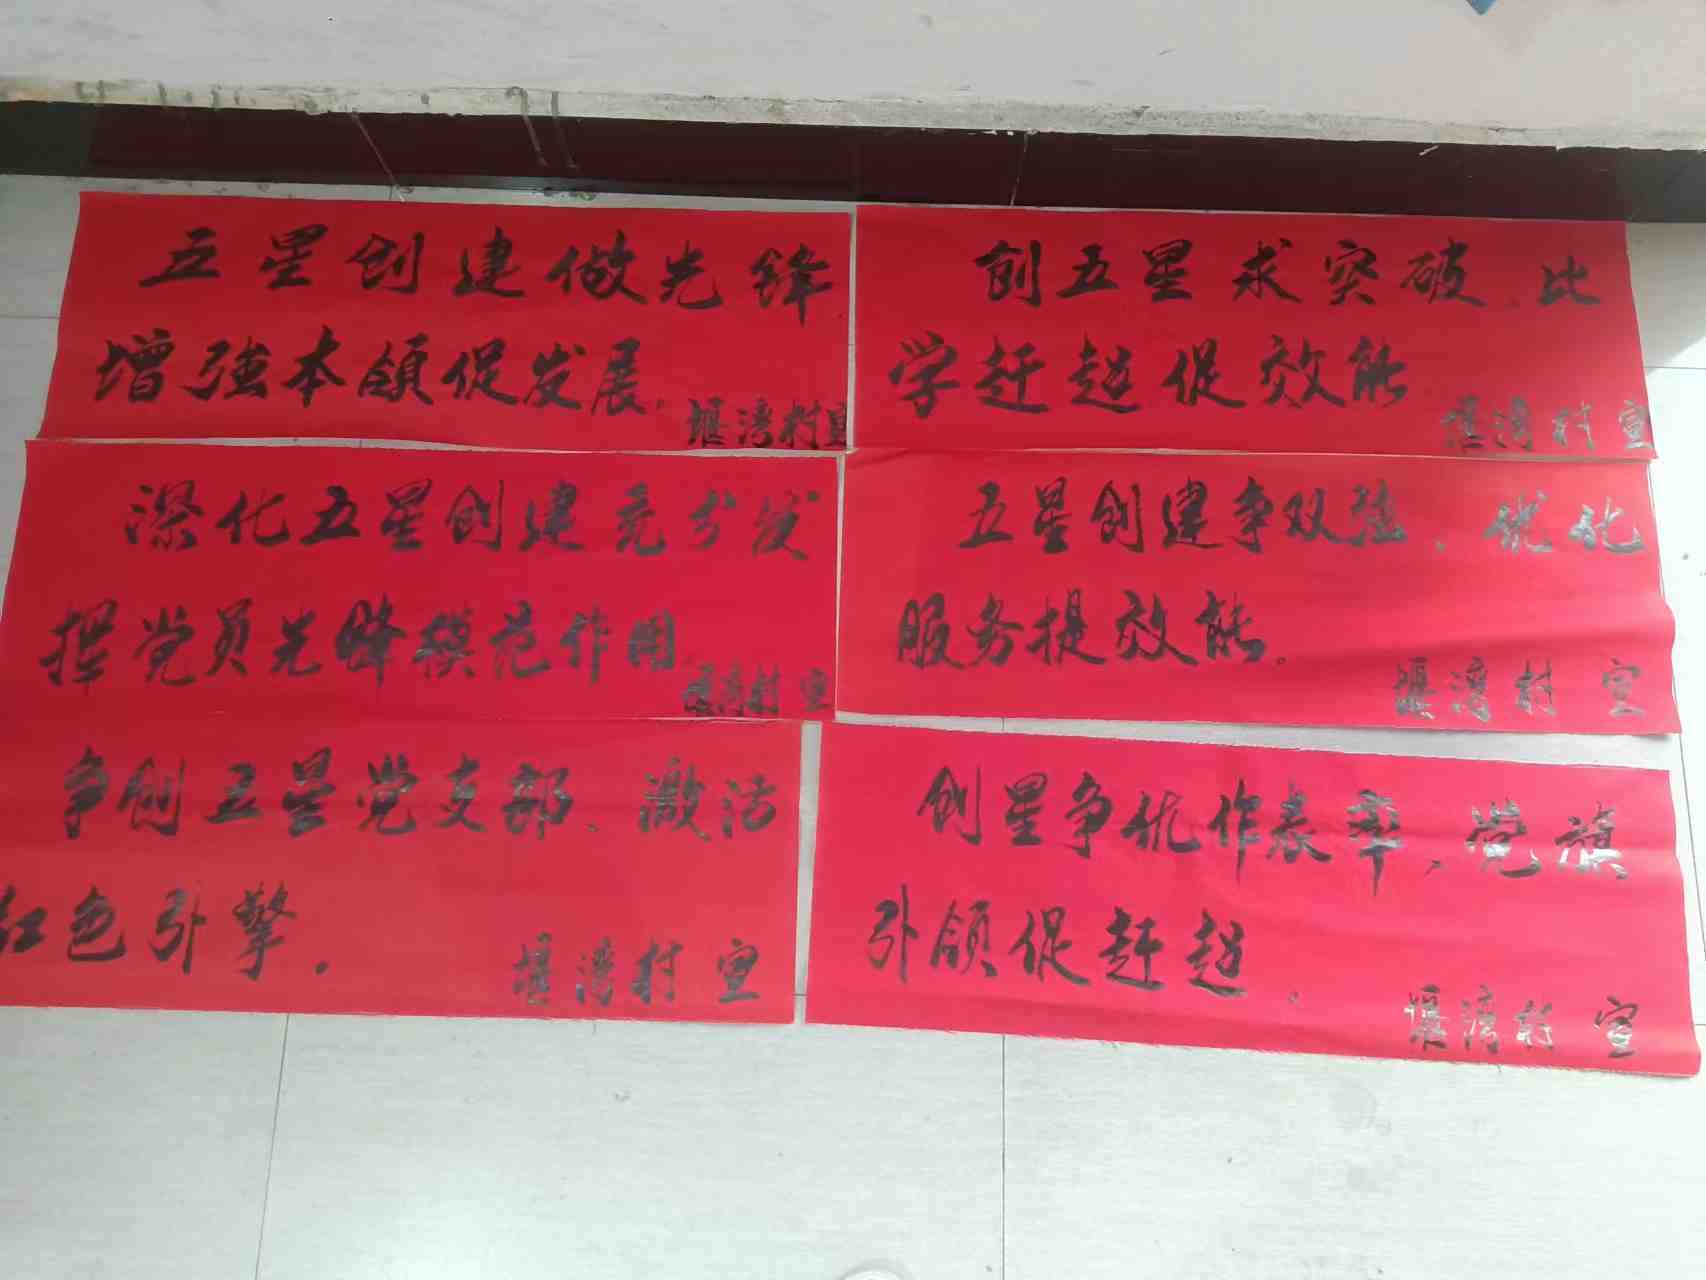 五星创建做先锋
增强本领促发展。
堰湾村宣
创五星求突破、比
学赶超促效能
堰湾村宣
深化五星创建充分发
挥党员先锋模范作用
堰湾村宣
五星创建争双强、优化
服务提效能。
堰湾村宣
争创五星党支部、激活
红色引擎.
堰湾村宣
创星争优作表率、党旗
引领促赶超.
堰湾村宣